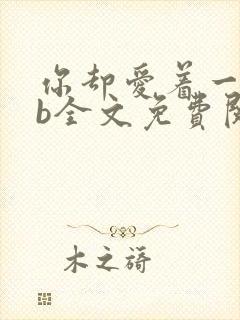 你却爱着一
b全文免费阅
木之蒔